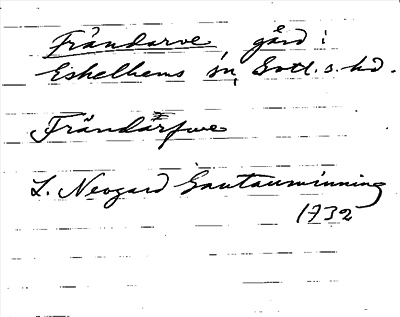 Frändarve, gård i
Eskelhems sn, Gotl. s. hd.
Frändärfwe
L. Neogard Gautauminning
1732